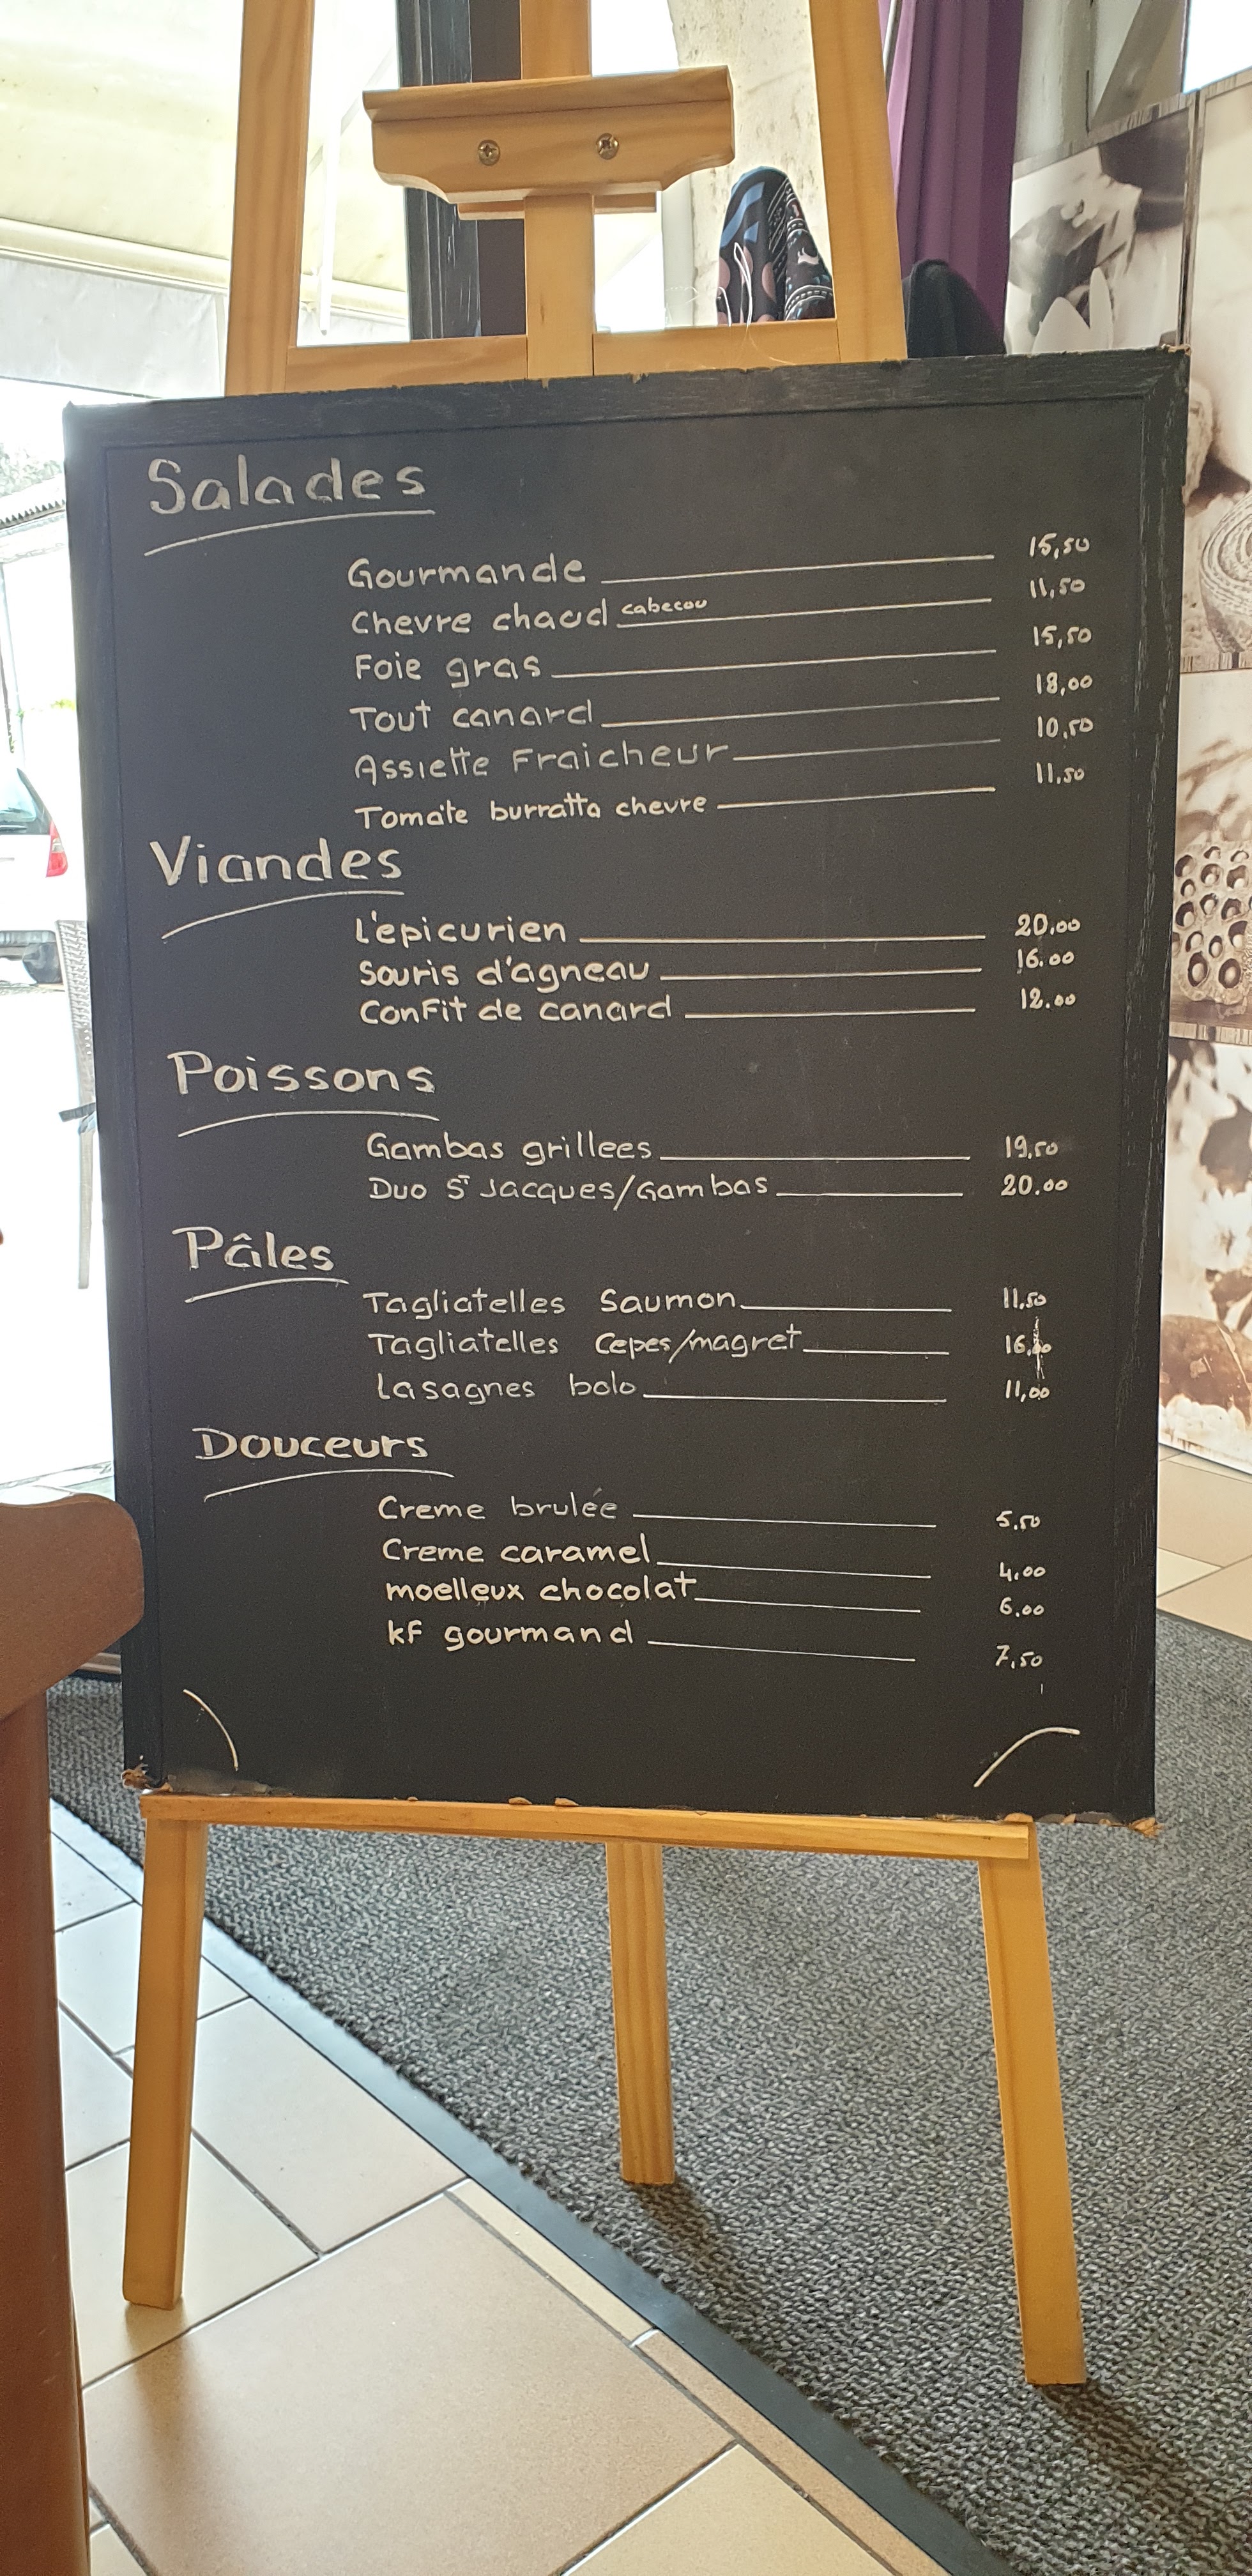 Salades
Gourmande 15,50
Chevre chaud cabecou 11,50
Foie gras 15,50
Tout canard 18,00
Assiette Fraicheur 10,50
Tomate burratta chevre 11,50
Viandes
L'epicurien 20.00
Souris d'agneau 16.00
Confit de canard 12.00
Poissons
Gambas grillees 19,50
Duo St Jacques/Gambas 20.00
Pâtes
Tagliatelles Saumon 11,50
Tagliatelles Cepes/magret
Lasagnes bolo 11,00
Douceurs
Creme brulée 5,50
Creme caramel 4,00
moelleux chocolat 6,00
kf gourmand 7,50